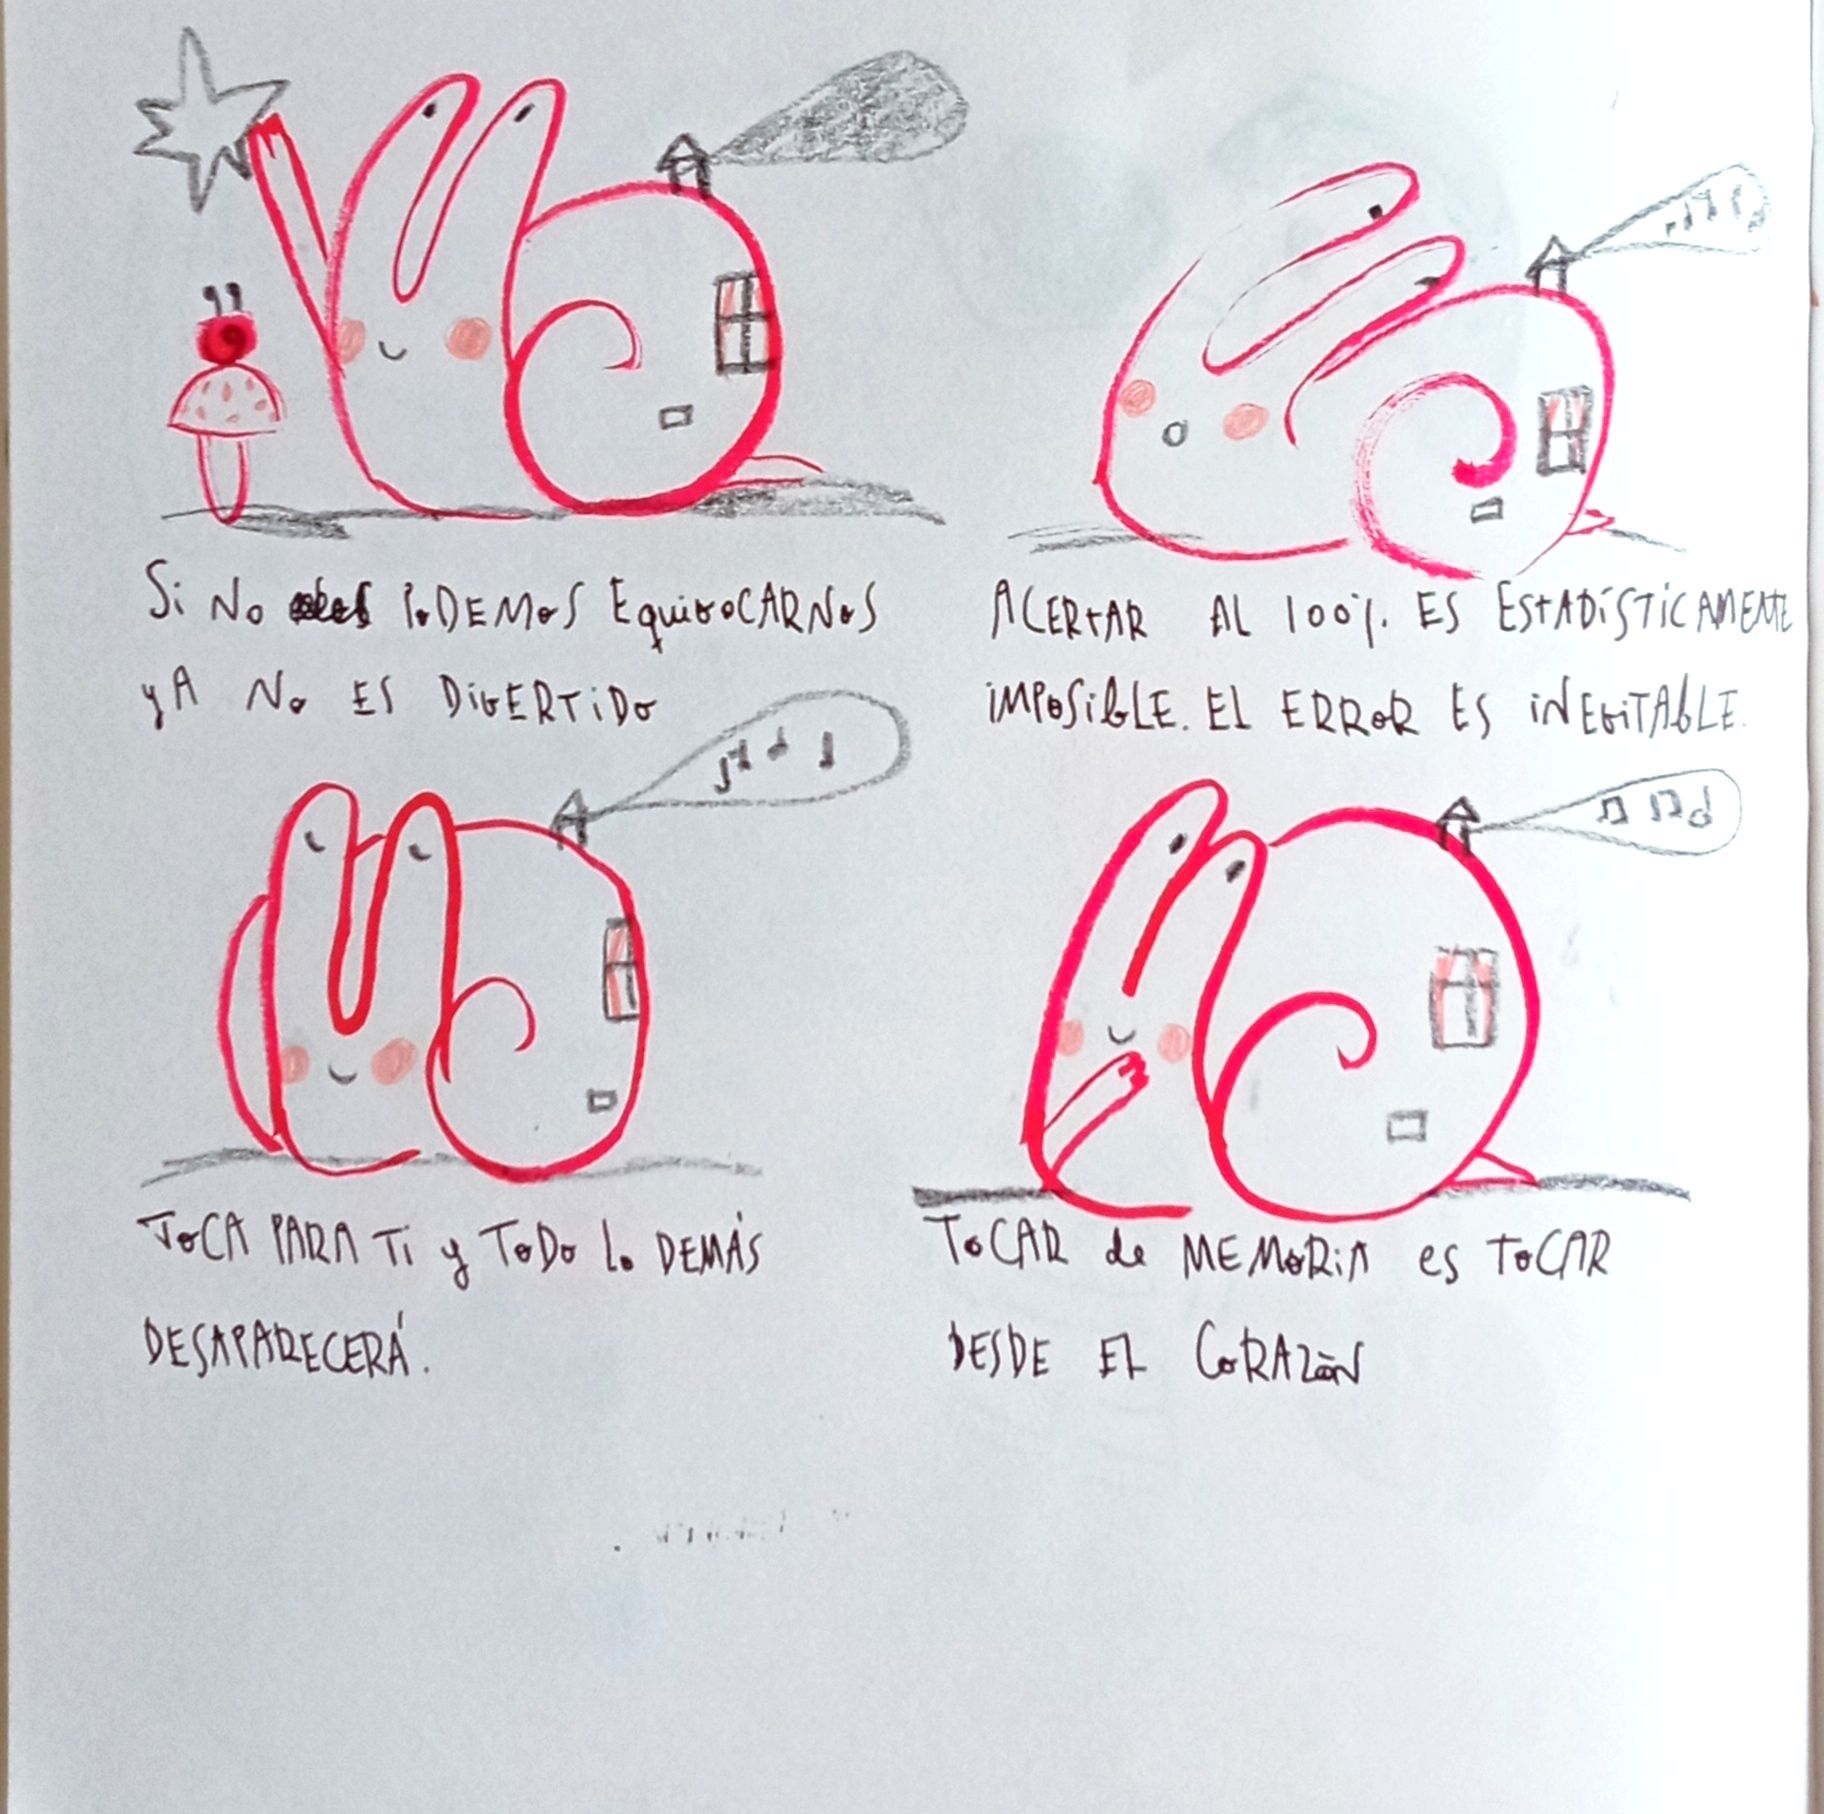 Si NO PODEMOS EQUIVOCARNOS
YA NO ES DIVERTIDO
ACERTAR AL 100% ES ESTADÍSTICAMENTE
IMPOSIBLE. EL ERROR ES INEVITABLE.
TOCA PARA TI y TODO LO DEMÁS
DESAPARECERÁ.
TOCAR de MEMORIA es TOCAR
DESDE EL CORAZÓN